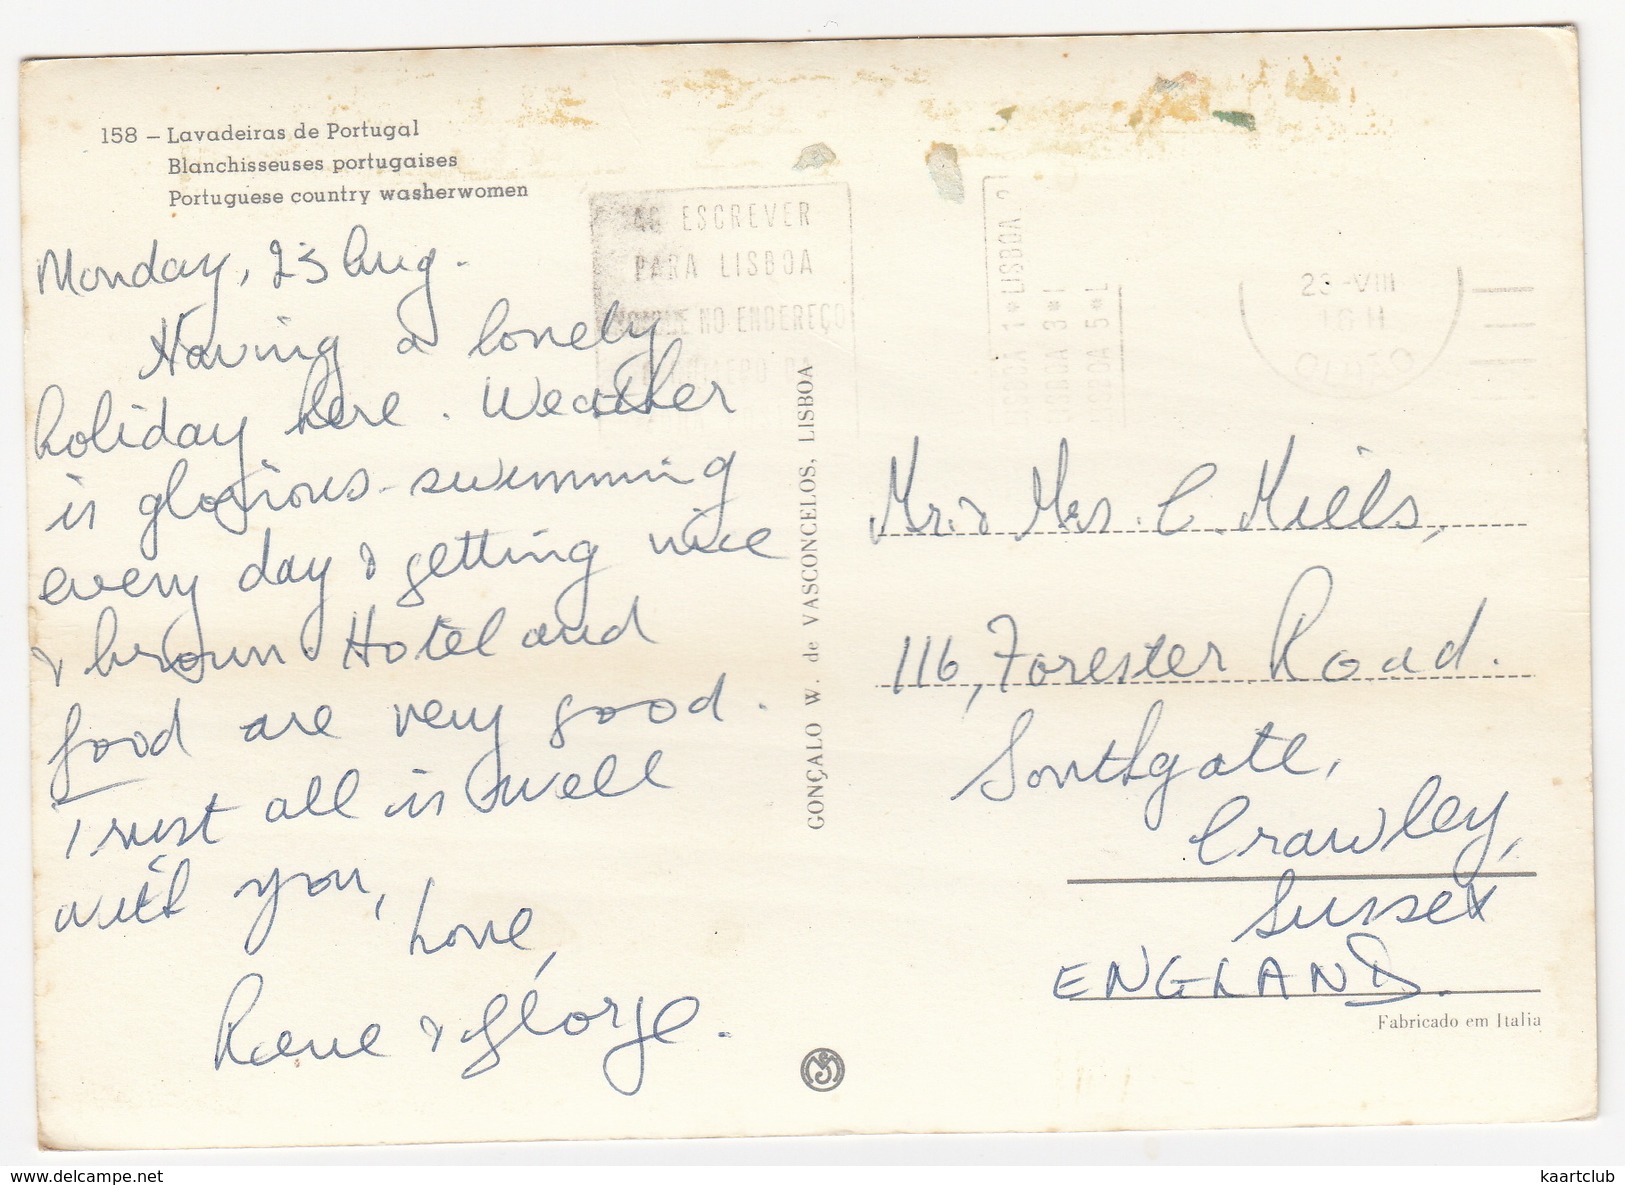 158 – Lavadeiras de Portugal
Blanchisseuses portugaises
Portuguese country washerwomen
Monday, 23 Aug.
Having a lonely
holiday here. Weather
is glorious - swimming
every day & getting nice
& brown. Hotel and
food are very good.
Trust all is well
with you,
Love,
Rene & George.
GONÇALO W. de VASCONCELOS, LISBOA
AO ESCREVER
PARA LISBOA
NO ENDEREÇO
LISBOA 1 * LISBOA 2
LISBOA 3 *
LISBOA 5 * L
23-VIII
16 H
Mr. & Mrs. C. Mills,
116, Forester Road.
Southgate,
Crawley,
Sussex
ENGLAND.
Fabricado em Italia
kaartclub